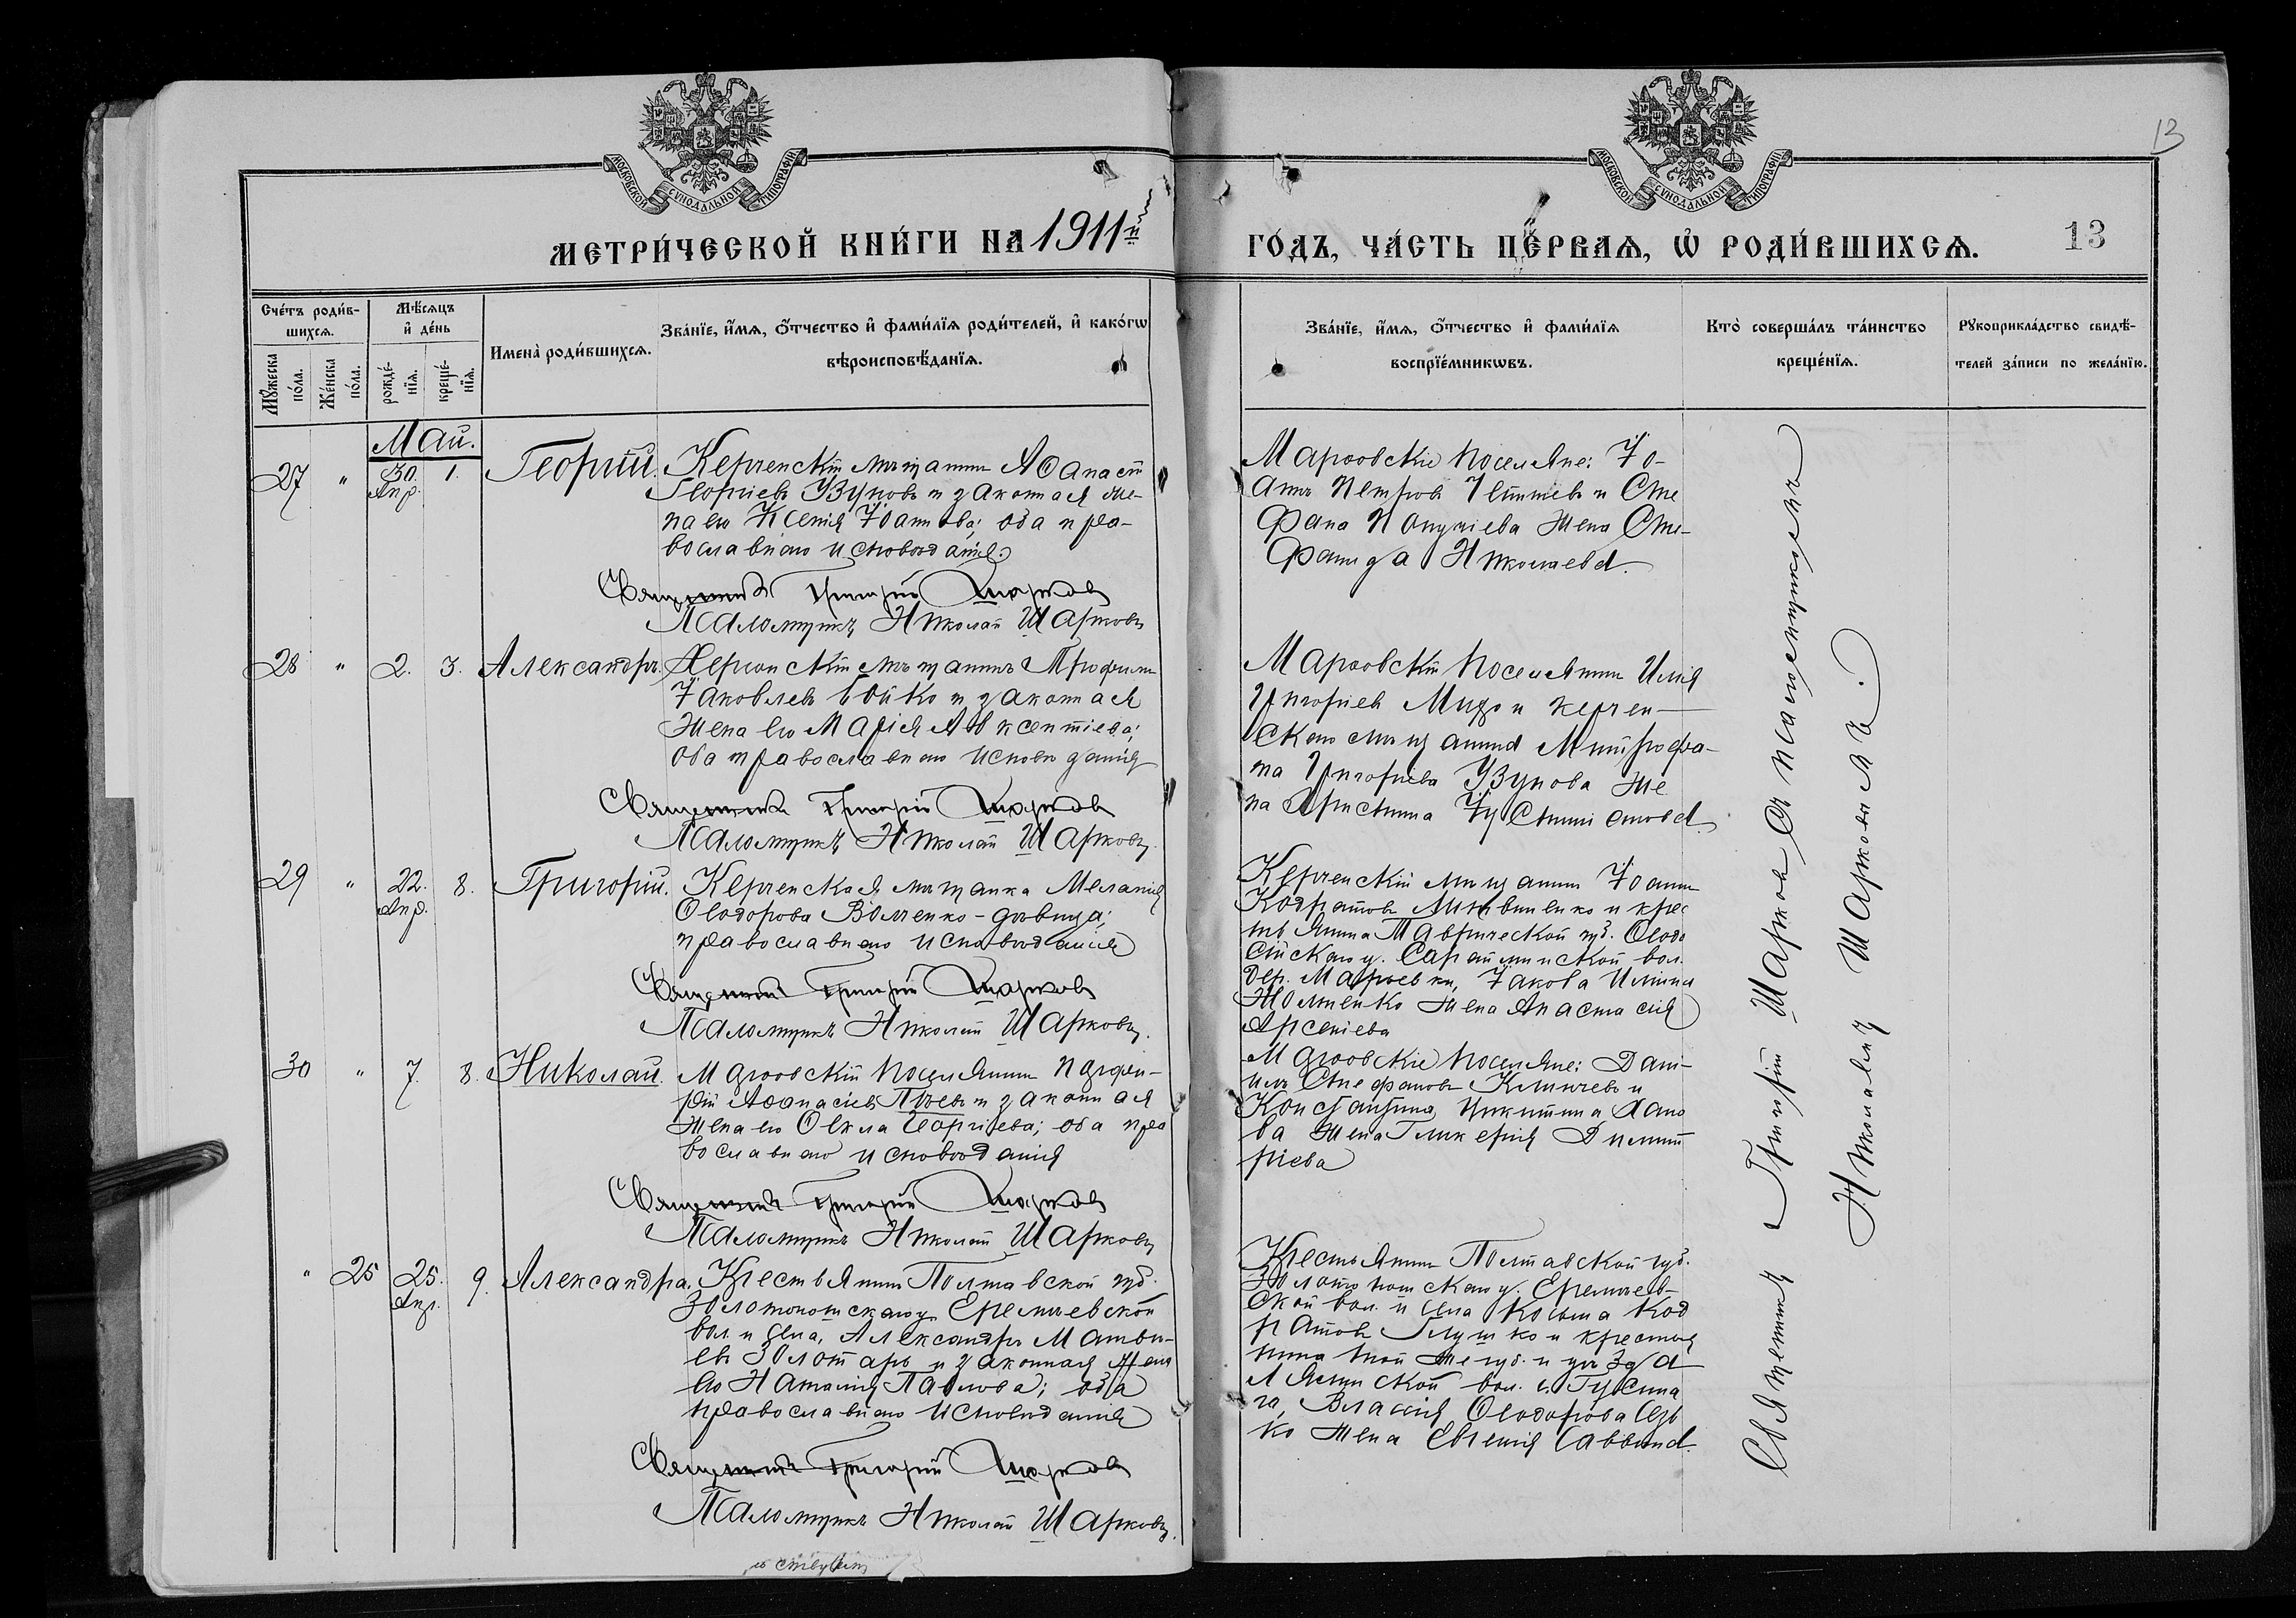 13
МОСКОВСКОЙ СУНОДАЛЬНОЙ ТИПОГРАФІИ
МОСКОВСКОЙ СУНОДАЛЬНОЙ ТИПОГРАФІИ
МЕТРИ́ЧЕСКОЙ КНИ́ГИ НА 1911й
ГО́ДЪ, ЧА́СТЬ ПЕ́РВАѦ, Ѡ РОДИ́ВШИХСѦ. 13
Сче́тъ роди́в-
шихсѧ.
Мꙋ́жеска
по́ла.
Же́нска
по́ла.
Мѣ́сѧцъ
и҆ де́нь
рожде́-
нїѧ.
креще́-
нїѧ.
Имена̀ роди́вшихсѧ.
Зва́нїе, и҆́мѧ, ѻ҆́тчество и҆ фами́лїѧ роди́телей, и҆ како́гѡ
вѣроисповѣ́данїѧ.
Зва́нїе, и҆́мѧ, ѻ҆́тчество и҆ фами́лїѧ
воспрїе́мникѡвъ.
Кто̀ соверша́лъ та́инство
креще́нїѧ.
Рꙋкоприкла́дство свидѣ́-
телей за́писи по жела́нїю.
Май.
27 " 30. Апр. 1. Георгій.
Керченскій мѣщанинъ Аѳанасій
Георгіевъ Узуновъ и законная же-
на его Ксенія Іоаннова; оба пра-
вославнаго исповѣданія.
Священникъ Григорій Шарковъ
Псаломщикъ Николай Шарковъ
Марѳовскіе поселяне: Іо-
аннъ Петровъ и Сте
фана жена Сте-
фанида Николаева.
28 " 2. 3. Александръ.
Херсонскій мѣщанинъ Трофимъ
Іаковлевъ Бойко и законная
жена его Марія Авксентіева;
оба православнаго исповѣданія
Священникъ Григорій Шарковъ
Псаломщикъ Николай Шарковъ.
Марѳовскій поселянинъ Илія
Григорьевъ и керчен-
скаго мѣщанина Митрофа-
на Григорьева Узунова же
на Христина Іустиніанова.
29 " 22. Апр. 8. Григорій.
Керченская мѣщанка Меланія
Ѳеодорова Волченко-дѣвица;
православнаго исповѣданія
Священникъ Григорій Шарковъ
Псаломщикъ Николай Шарковъ.
Керченскій мѣщанинъ Іоаннъ
Кодратовъ Литвиненко и крес
тьянина Таврической губ. Ѳеодо
сійскаго у. Сарайминской вол.
дер. Марьевки, Іакова Иліина
жена Анастасія
Арсеніева
30 " 7. 8. Николай.
Марѳовскій поселянинъ Порфи-
рій Аѳанасіевъ и законная
жена его Ѳекла Георгіева; оба пра
вославнаго исповѣданія
Священникъ Григорій Шарковъ
Псаломщикъ Николай Шарковъ
Марѳовскіе поселяне: Дани-
илъ Стефановъ Кличевъ и
Константина Никитина
ва жена Гликерія Димит
ріева
" 25 25. Апр. 9. Александра.
Крестьянинъ Полтавской губ.
Золотоношскаго у. Еремѣевской
вол. и села, Александръ Матѳі-
евъ Золотарь и законная жена
его Наталія Павлова; оба
православнаго исповѣданія
Священникъ Григорій Шарковъ
Псаломщикъ Николай Шарковъ.
Крестьянинъ Полтавской губ.
Золотоношскаго у. Еремѣев-
ской вол. и села Козьма Код
ратовъ Глушко и крестья
нина той же губ. и уѣзда
вол.
Власія Ѳеодорова
ко жена Евгенія Саввина.
Священникъ Григорій Шарковъ Съ псаломщикомъ
Николаемъ Шарковымъ.